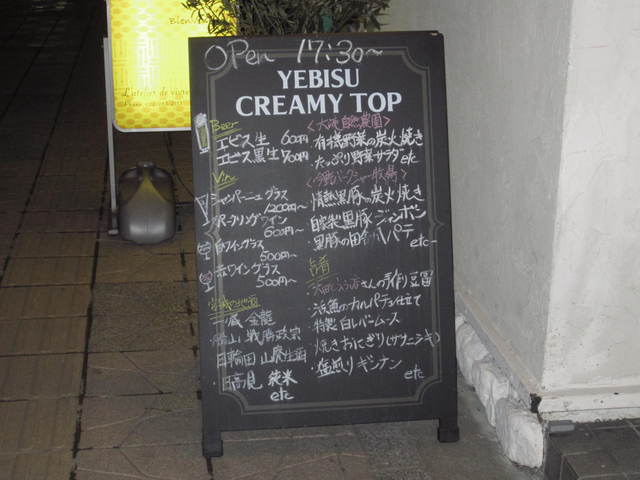 Bienvenu
L'atelier de vivre
OPen 17:30~
YEBISU
CREAMY TOP
Beer
エビス生 600円
エビス黒生 700円
Vin
シャンパーニュグラス
1200円~
スパークリングワイン
600円~
白ワイングラス
500円~
赤ワイングラス
500円~
宮城の地酒
蔵 金龍
勝山 戦勝政宗
日輪田 山廃生酒
日高見 純米
etc
自然農園〉
有機野菜の炭火焼き
たっぷり野菜サラダ etc
〈今野バークシャー牧場〉
情熱黒豚の炭火焼き
自家製黒豚ジャンボン
・黒豚の田舎パテ
etc~
・さんの手作り豆冨
・活魚のカルパッチョ仕立て
・特製白レバームース
・焼きおにぎり
・塩煎りギンナン
etc